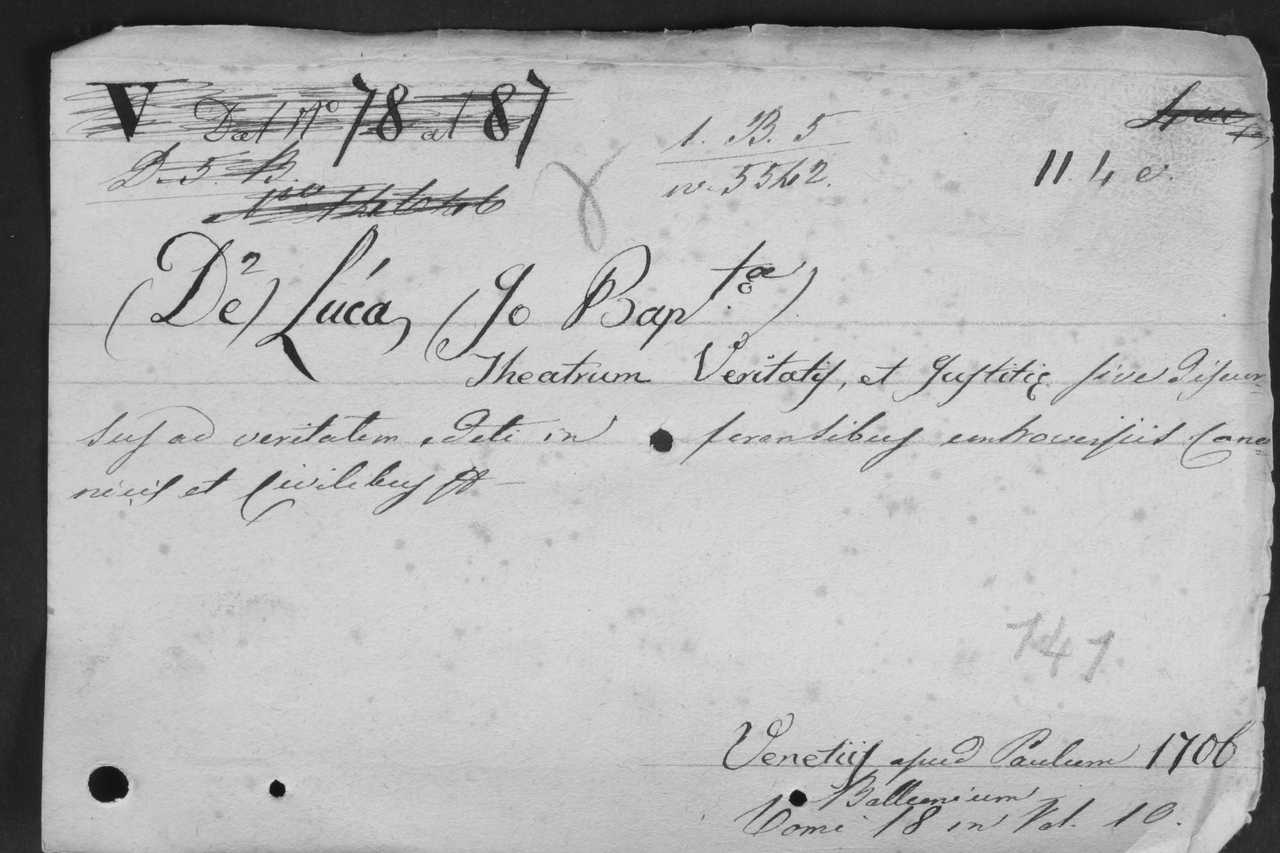 V Dal Nº 78 al 87
D. 5. B.
1. B. 5
nº 5542.
11. 4 e.
(De²) Luca, (Jo Bap.tæ)
Theatrum Veritatis, et Justitię sive Discur-
sus ad veritatem editi in forensibus controversiis Cano-
nicis et Civilibus
141
Venetiis apud Paulum 1706
Balleonium
Tomi 18 in Vol. 10.